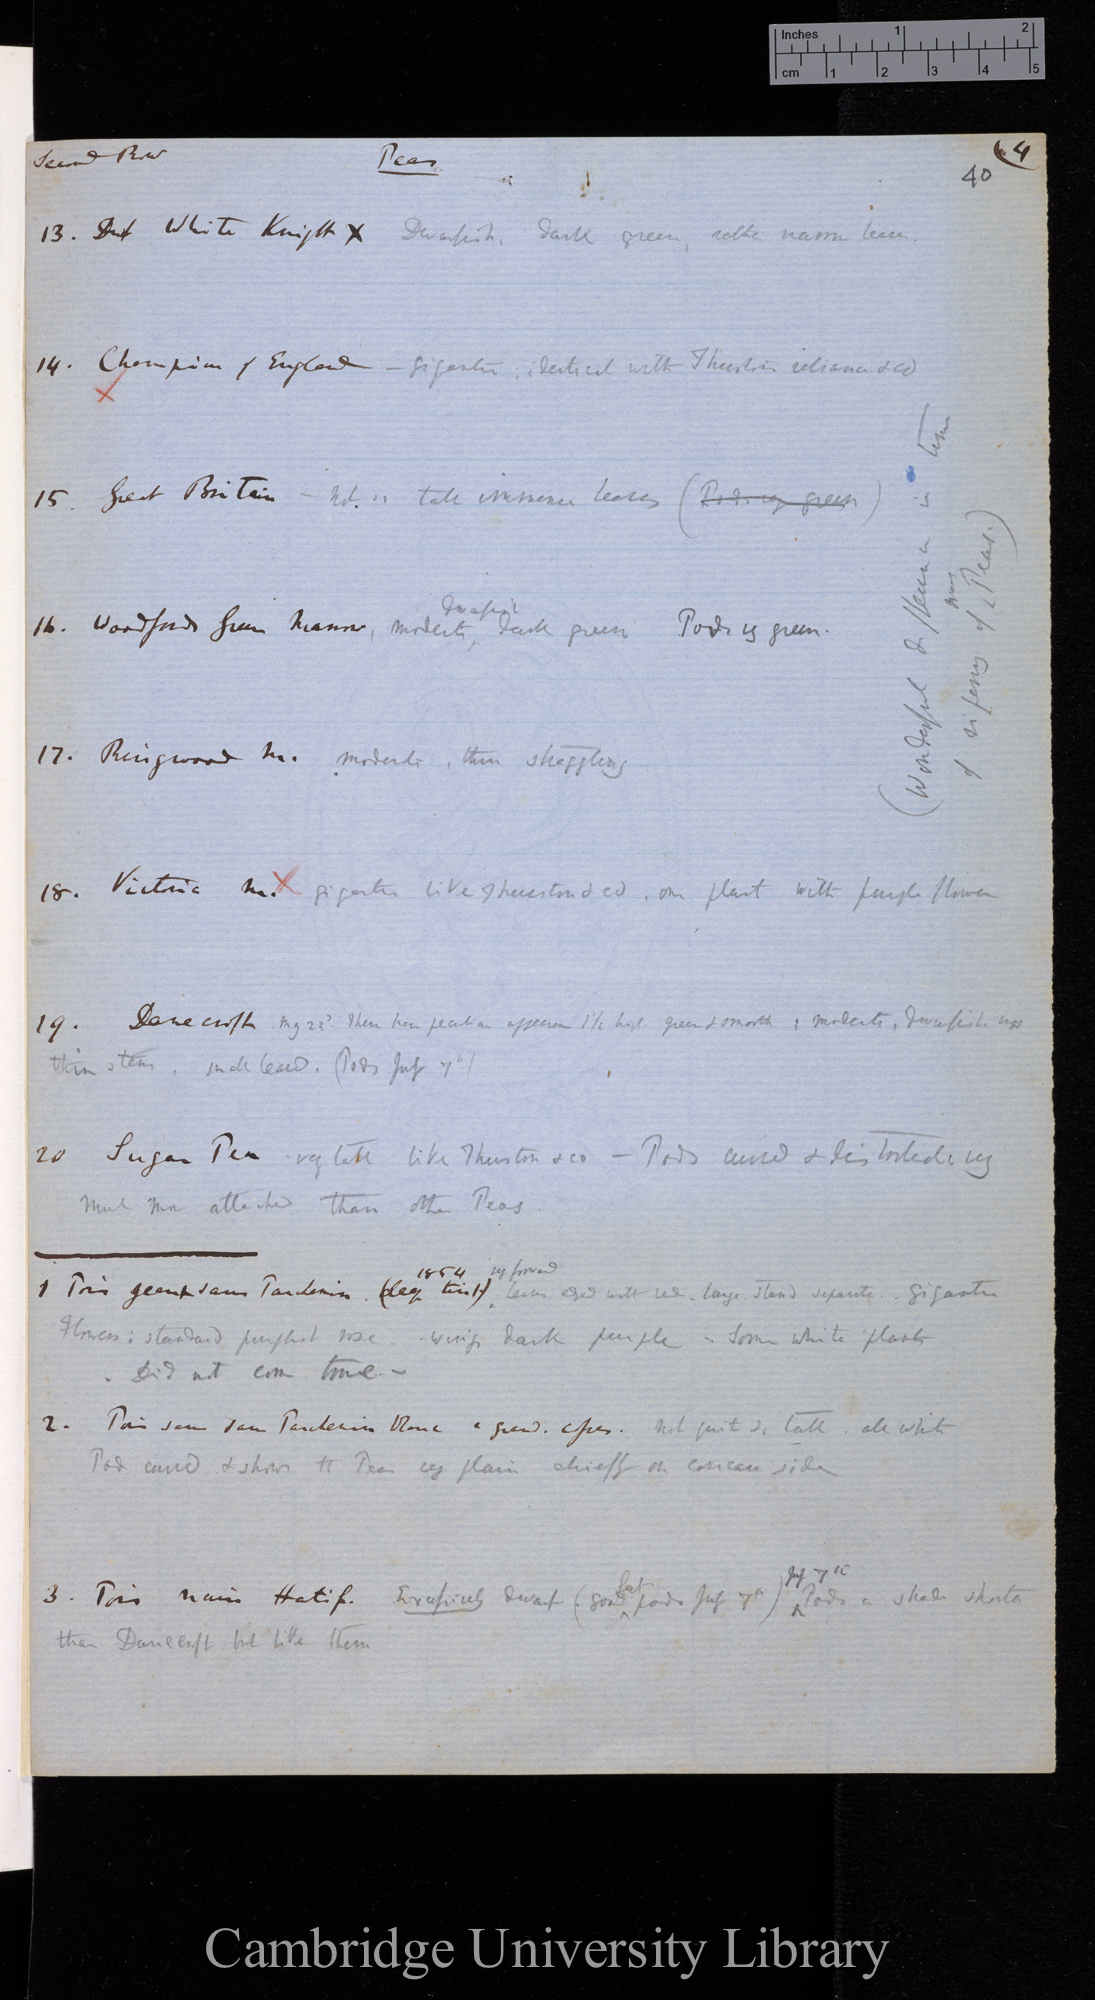 Inches 1 2
cm 1 2 3 4 5
Second Row Peas (4
40
13. Dwf White Knight X Dwarfish, dark green, rather narrow leaves.
14. Champion of England – gigantic, identical with Thurston's reliance & co
X
15. Great Britain – not so tall immense leaves (Pods vy green)
dwarfish
16. Woodfords Green Marrow, moderate, dark green Pods vy green.
17. Ringwood M. moderate, thin straggling
18. Victoria M. X gigantic like Thurston & co, one plant with purple flower
19. Danecroft green & smooth, moderate, dwarfish
thin stems, small leaves. (Pods July 7th)
20 Sugar Pea very tall like Thurston & co – Pods curved & distorted, vy
much more attached than other Peas.
1854 vy forward
1 Pois geant sans Parchemin. leaves edged with red. large stand separate. gigantic
Flowers; standard purplish rose. wings dark purple – Some white plants
. Did not come true –
2. Pois sans Parchemin blanc a grand. cosses. not quite so tall. all white
Pod curved & shows the Pea vy plain chiefly on concave side
fat July 7th
3. Pois nain Hatif. dwarf (good pods July 7th) Pods a shade shorter
than Danecroft but like them
(Wonderful difference in time
of ripening of these Peas.)
Cambridge University Library